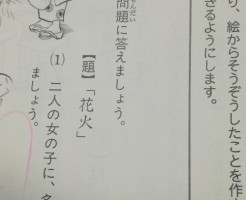 り、絵からそうぞうしたことを作
ぎるようにします。
問題に答えましょう。
だい
【題】「花火」
(1) 二人の女の子に、名
ましょう。